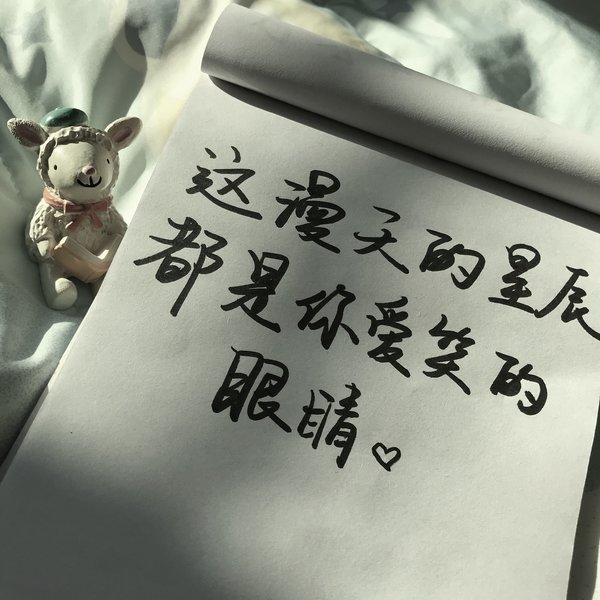 这漫天的星辰
都是你爱笑的
眼睛。♡